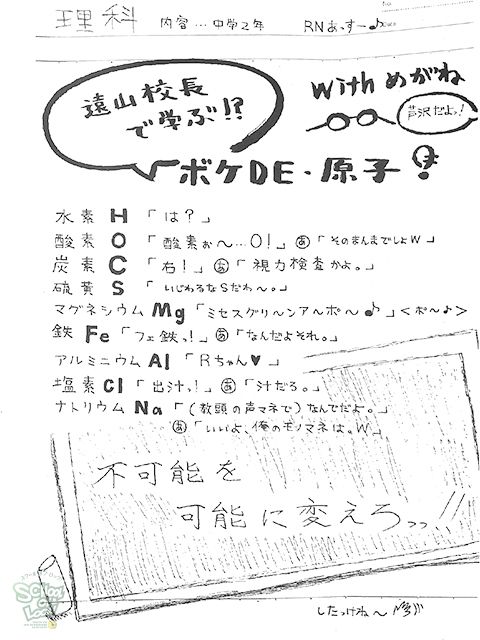 理科 内容…中学2年 RNあっすー♪
遠山校長
で学ぶ!?
with めがね
芦沢だよっ!
ボケDE・原子!
水素 H 「は?」
酸素 O 「酸素ぉ〜…O!」 あ「そのまんまでしょw」
炭素 C 「右!」 あ「視力検査かよ。」
硫黄 S 「いじわるなSだわ〜。」
マグネシウム Mg 「ミセスグリ〜ンア〜ポ〜♪」<ポ〜♪>
鉄 Fe 「フェ鉄っ!」 あ「なんだよそれ。」
アルミニウム Al 「Rちゃん♥」
塩素 Cl 「出汁っ!」 あ「汁だろ。」
ナトリウム Na 「(教頭の声マネで)なんでだよ。」
あ「いいよ、俺のモノマネは。w」
不可能を
可能に変えろっっ!!
したっけね〜